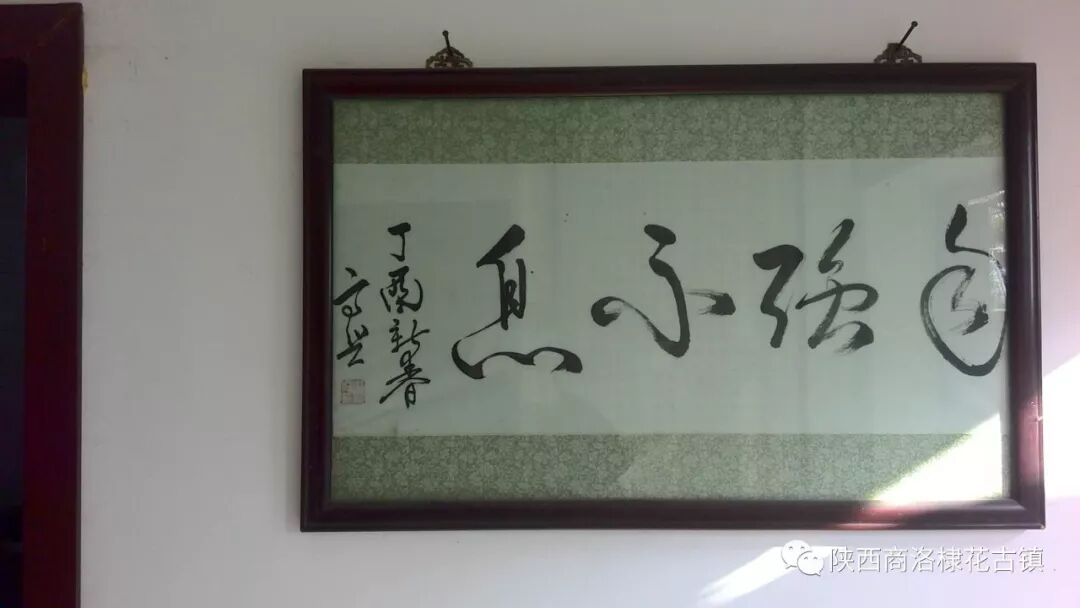 自强不息
丁酉新春
高兴
陕西商洛棣花古镇